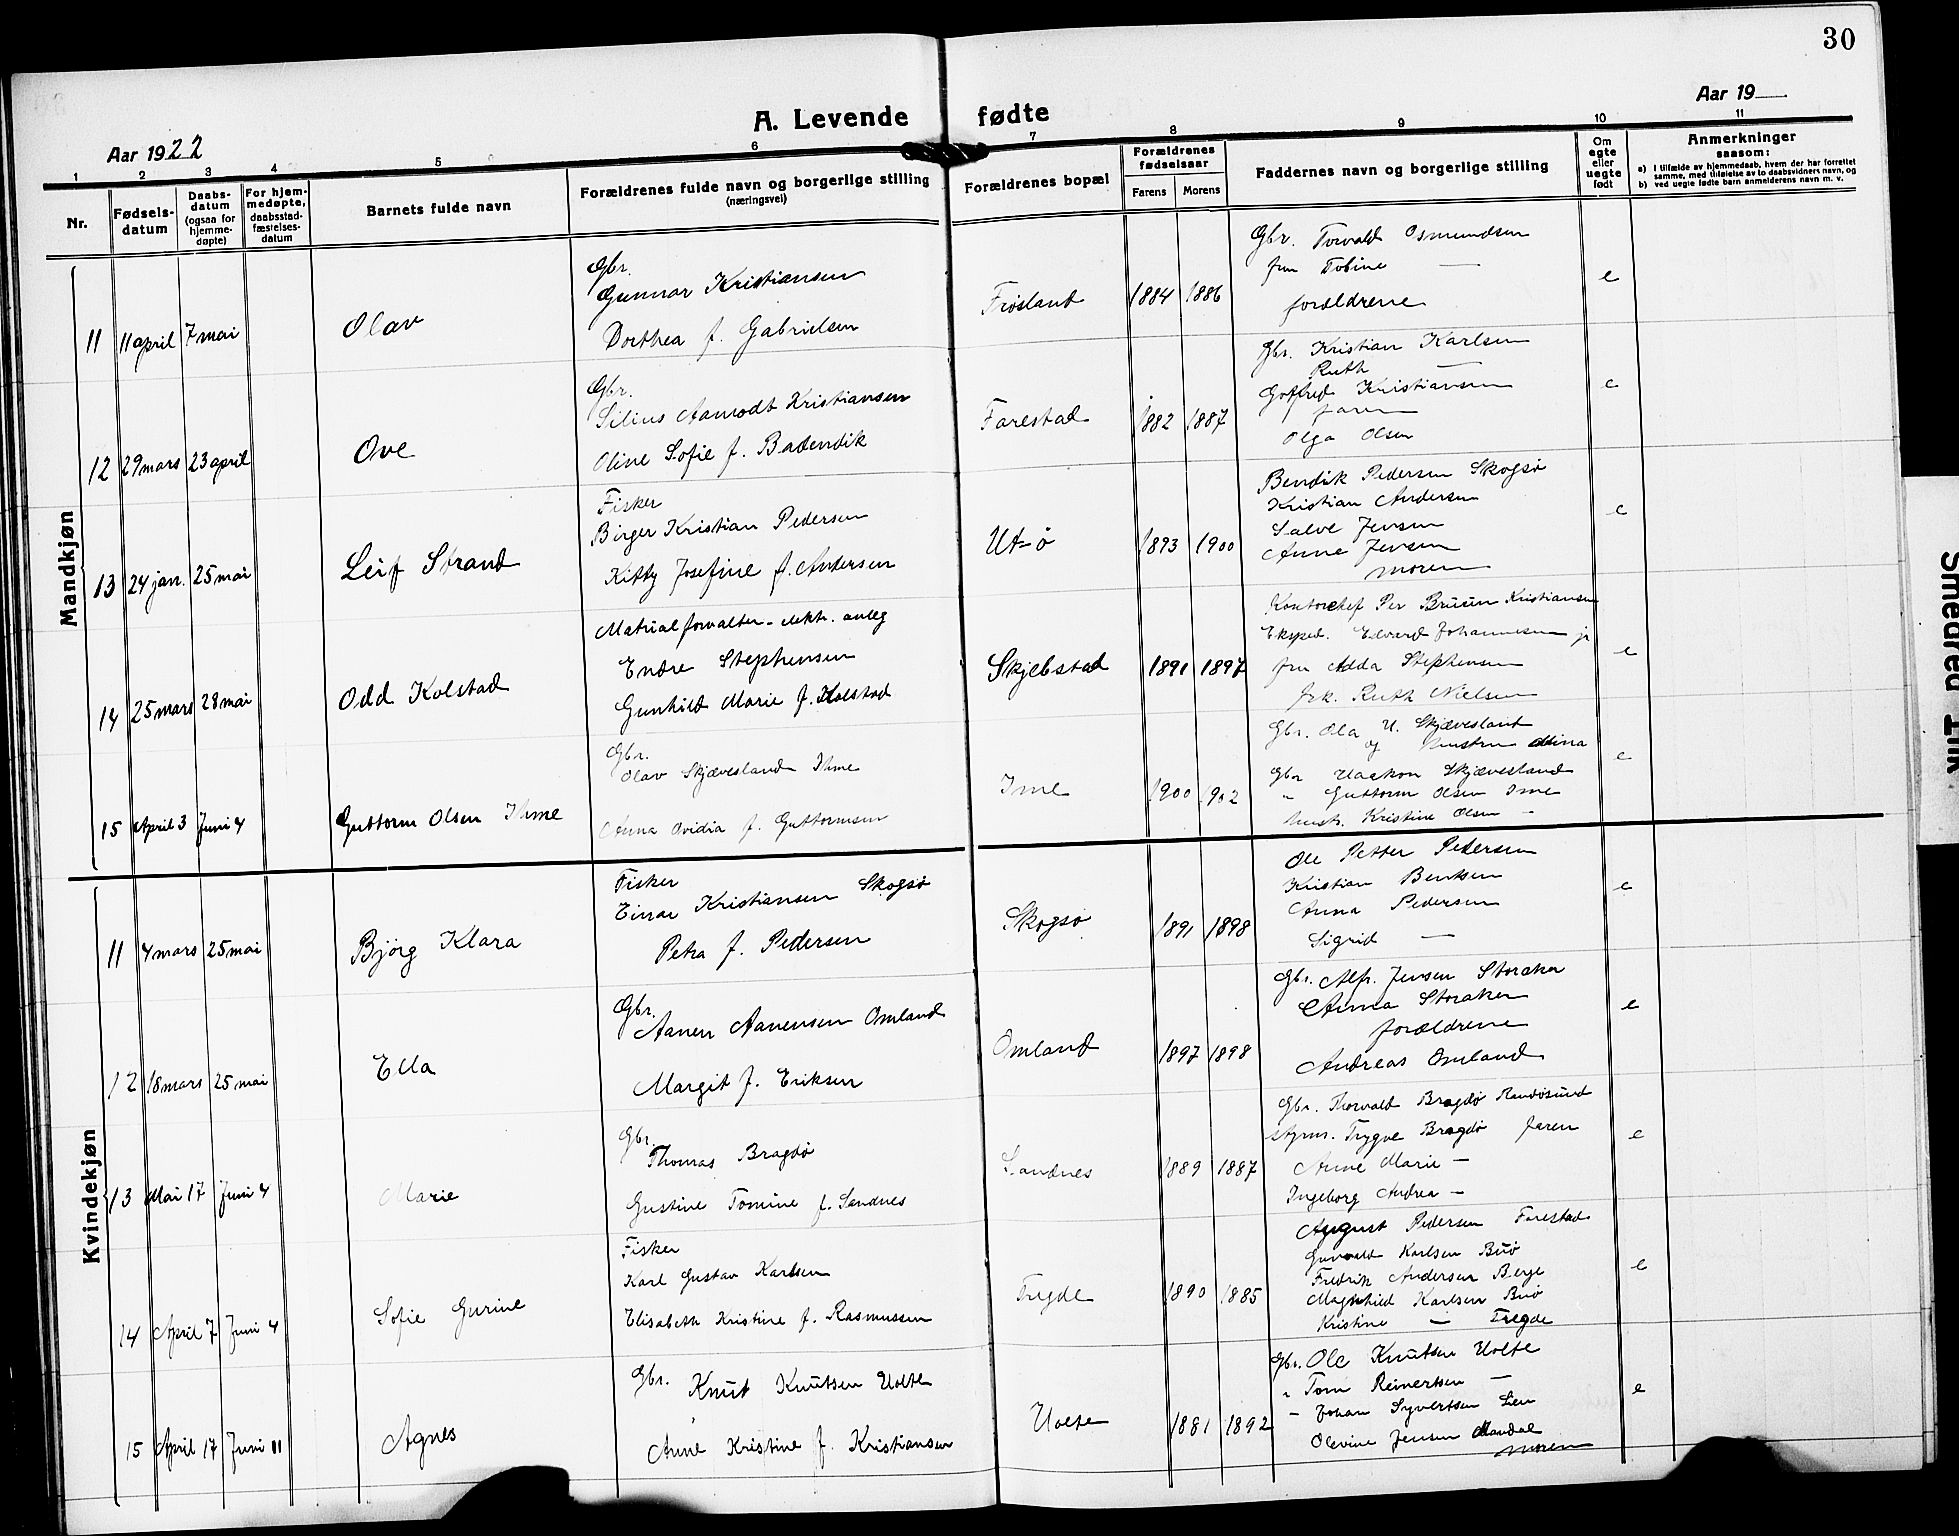 30
A. Levende fødte
Aar 1922
Aar 19
1 2 3 4 5 6 7 8 9 10 11
Nr.
Fødsels-
datum
Daabs-
datum
(ogsaa for
hjemme-
døpte)
For hjem-
medøpte,
daabsstad-
fæstelses-
datum
Barnets fulde navn
Forældrenes fulde navn og borgerlige stilling
(næringsvei)
Forældrenes bopæl
Forældrenes
fødselsaar
Farens Morens
Faddernes navn og borgerlige stilling
Om
egte
eller
uegte
født
Anmerkninger
saasom:
a) I tilfælde av hjemmedaab, hvem der har forrettet
samme, med tilføielse av to daabsvidners navn, og
b) ved uegte fødte barn anmelderens navn m. v.
Mandkjøn
11 11 april 7 mai Olav
Gbr.
Gunnar Kristiansen
Dorthea f. Gabrielsen
Frøsland 1884 1886
Gbr. Torvald Osmundsen
fru Tobine —
forældrene
e
12 29 mars 23 april Ove
Gbr.
Silius Aamodt Kristiansen
Oline Sofie f. Badendik
Farestad 1882 1887
Gbr. Kristian Karlsen
Ruth —
Gotfred Kristiansen
faren
Olga Olsen
e
13 24 jan. 25 mai Leif Strand
Fisker
Birger Kristian Pedersen
Kitty Josefine f. Andersen
Ut-ø 1893 1900
Bendik Pedersen Skogsø
Kristian Andersen
Salve Jensen
Anne Jensen
moren
e
14 25 mars 28 mai Odd Kolstad
Matrialforvalter - elektr. anleg
Endre Stephensen
Gunhild Marie f. Kolstad
Skjebstad 1891 1897
Kontorchef Per Bruun Kristiansen
Eksped. Edvard Johannesen jr
fru Adda Stephensen
frk. Ruth Nielsen
e
15 April 3 Juni 4 Guttorm Olsen Ihme
Gbr.
Olav Skjævesland Ihme
Anna Ovidia f. Guttormsen
Ime 1900 1902
Gbr. Ola U. Skjævesland
og hustru Mina
Gbr Haakon Skjævesland
" Guttorm Olsen Ime
hust. Kristine Olsen —
e
Kvindekjøn
11 4 mars 25 mai Bjørg Klara
Fisker
Einar Kristiansen Skogsø
Petra f. Pedersen
Skogsø 1891 1898
Ole Petter Pedersen
Kristian Bentsen
Anna Pedersen
Sigrid —
e
12 18 mars 25 mai Ella
Gbr.
Aanen Aanensen Omland
Margit f. Eriksen
Omland 1897 1898
Gbr. Alfr. Jensen Storaker
Anna Storaker
forældrene
Andreas Omland
e
13 Mai 17 Juni 4 Marie
Gbr.
Thomas Bragdø
Gustine Tomine f. Sandnes
Sandnes 1889 1887
Gbr. Thorvald Bragdø Randøsund
styrm. Trygve Bragdø faren
Anne Marie —
Ingeborg Andrea —
e
14 April 7 Juni 4 Sofie Gurine
Fisker
Karl Gustav Karlsen
Elisabeth Kristine f. Rasmussen
Tregde 1890 1885
August Pedersen Farestad
Gunvald Karlsen Buø
Fredrik Andersen Berge
Magnhild Karlsen Buø
Kristine — Tregde
e
15 April 17 Juni 11 Agnes
Gbr. Knut Knutsen Uolte
Anne Kristine f. Kristiansen
Uolte 1881 1892
Gbr. Ole Knutsen Uolte
" Tom Reinertsen —
" Johan Syvertsen Lien
Olevine Jensen Mandal
moren
e